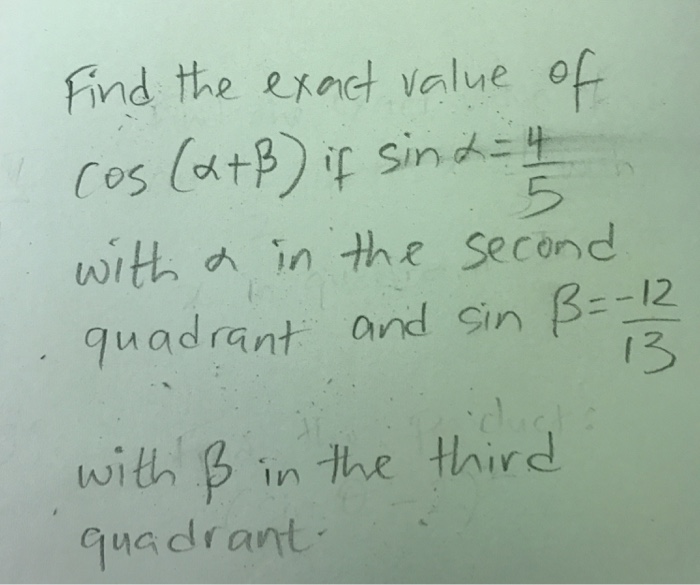 Find the exact value of
cos (α+β) if sin α = 4/5
with α in the second
quadrant and sin β = -12/13
with β in the third
quadrant.